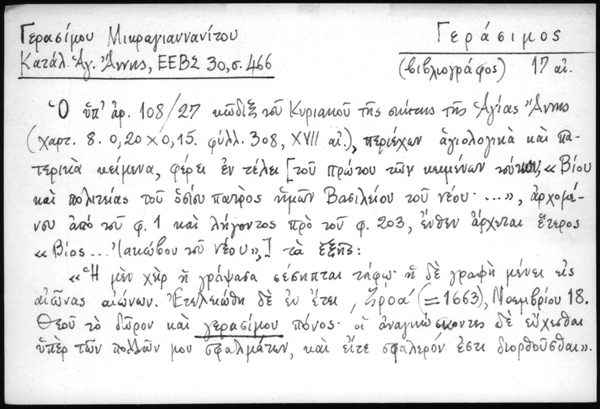 Γερασίμου Μικραγιαννανίτου
Κατάλ. Ἁγ. Ἄννης, ΕΕΒΣ 30, σ. 466
Γεράσιμος
(βιβλιογράφος) 17 αἰ.
Ὁ ὑπ' ἀρ. 108/27 κῶδιξ τοῦ Κυριακοῦ τῆς σκήτης τῆς Ἁγίας Ἄννης
(χαρτ. 8. 0,20 x 0,15. φύλλ. 308, XVII αἰ.), περιέχων ἁγιολογικὰ καὶ πα-
τερικὰ κείμενα, φέρει ἐν τέλει [τοῦ πρώτου τῶν κειμένων τούτων, «Βίου
καὶ πολιτείας τοῦ ὁσίου πατρὸς ἡμῶν Βασιλείου τοῦ νέου ...», ἀρχομέ-
νου ἀπὸ τοῦ φ. 1 καὶ λήγοντος πρὸ τοῦ φ. 203, ἔνθεν ἄρχεται ἕτερος
«Βίος ... Ἰακώβου τοῦ νέου»,] τὰ ἑξῆς:
«Ἡ μὲν χεὶρ ἡ γράψασα σέσηπται τάφῳ· ἡ δὲ γραφὴ μένει εἰς
αἰῶνας αἰώνων. Ἐτελειώθη δὲ ἐν ἔτει ͵ζροα΄ (=1663), Νοεμβρίου 18.
Θεοῦ τὸ δῶρον καὶ γερασίμου πόνος· οἱ ἀναγινώσκοντες δὲ εὔχεσθαι
ὑπὲρ τῶν πολλῶν μου σφαλμάτων, καὶ εἴτε σφαλερόν ἐστι διορθοῦσθαι».